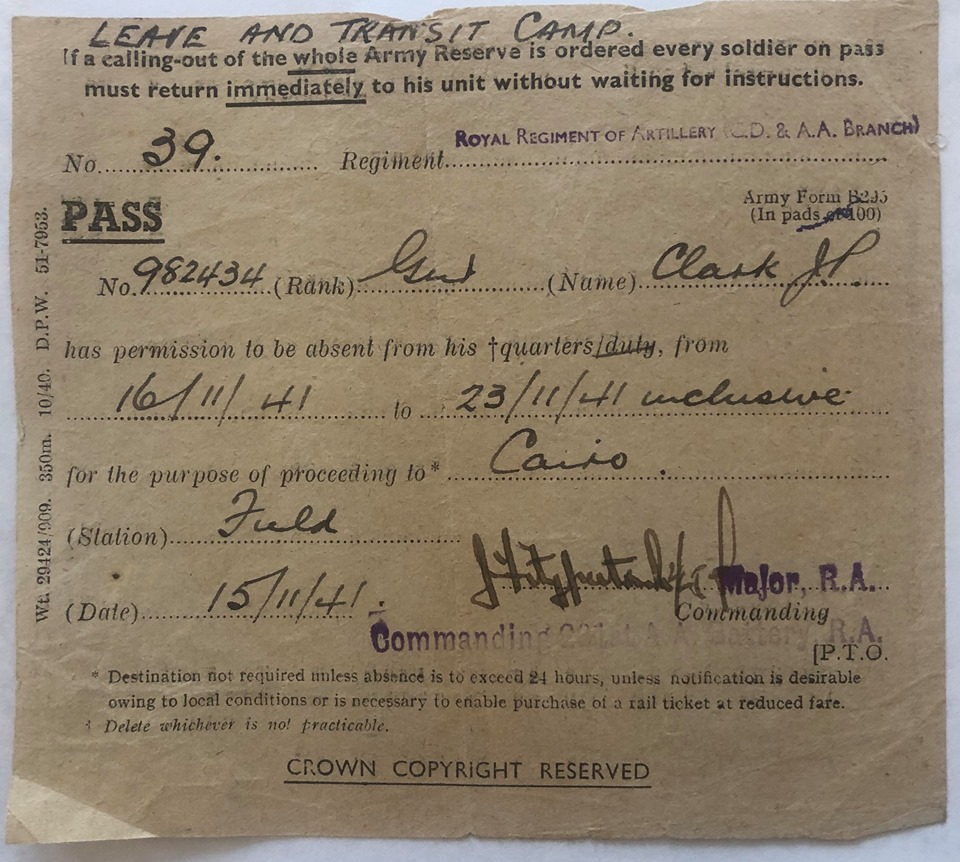 LEAVE AND TRANSIT CAMP.
If a calling-out of the whole Army Reserve is ordered every soldier on pass
must return immediately to his unit without waiting for instructions.
ROYAL REGIMENT OF ARTILLERY (C.D. & A.A. BRANCH)
No. 39. Regiment
Army Form B295
PASS
(In pads of 100)
No. 982434 (Rank) Gnr (Name) Clark J P
has permission to be absent from his †quarters/duty, from
16/11/41 to 23/11/41 inclusive
for the purpose of proceeding to* Cairo.
(Station) Field
Major, R.A.
(Date) 15/11/41. Commanding
Commanding A.A. Battery, R.A.
[P.T.O.
* Destination not required unless absence is to exceed 24 hours, unless notification is desirable
owing to local conditions or is necessary to enable purchase of a rail ticket at reduced fare.
† Delete whichever is not practicable.
CROWN COPYRIGHT RESERVED
Wt. 29424/909. 350m. 10/40. D.P.W. 51-7953.